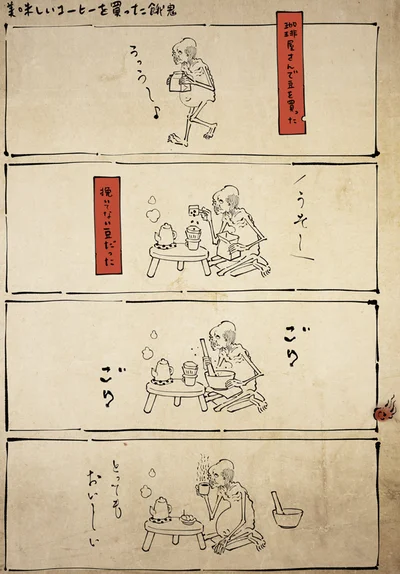 美味しいコーヒーを買った餓鬼
珈琲屋さんで豆を買った
挽いてない豆だった
ごり
ごり
とっても
おいーしい